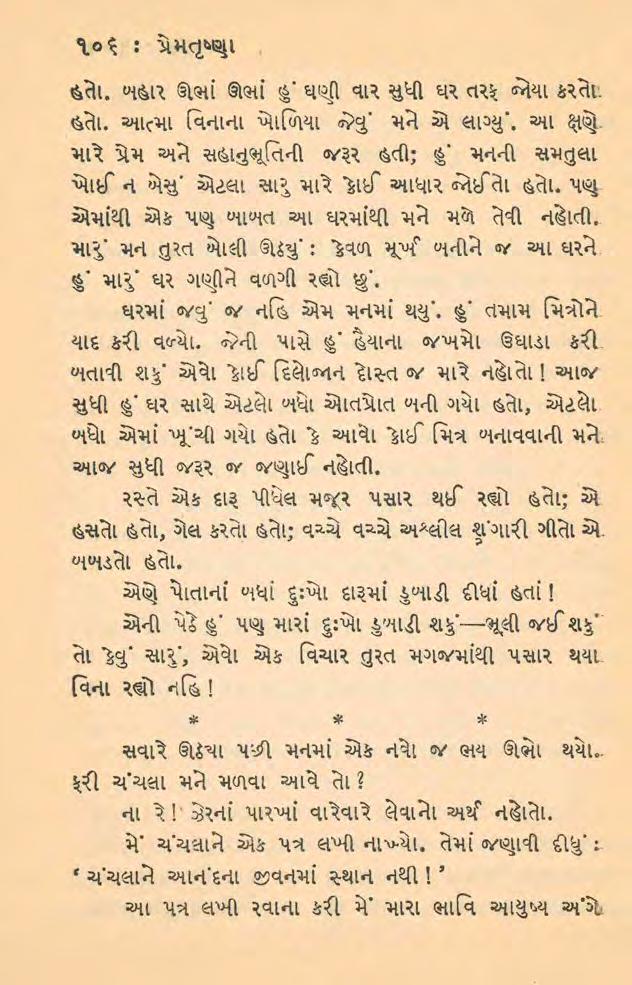 ૧૦૬ : પ્રેમતૃષ્ણા
હતો. બહાર ઊભાં ઊભાં હું ઘણી વાર સુધી ઘર તરફ જોયા કરતો
હતો. આત્મા વિનાના ખોળિયા જેવું મને એ લાગ્યું. આ ક્ષણે
મારે પ્રેમ અને સહાનુભૂતિની જરૂર હતી; હું મનની સમતુલા
ખોઈ ન બેસું એટલા સારુ મારે કોઈ આધાર જોઈતો હતો. પણ
એમાંથી એક પણ બાબત આ ઘરમાંથી મને મળે તેવી નહોતી.
મારું મન તુરત બોલી ઊઠયું : કેવળ મૂર્ખ બનીને જ આ ઘરને
હું મારું ઘર ગણીને વળગી રહ્યો છું.
ઘરમાં જવું જ નહિ એમ મનમાં થયું. હું તમામ મિત્રોને
યાદ કરી વળ્યો. જેની પાસે હું હૈયાના જખમો ઉઘાડા કરી
બતાવી શકું એવો કોઈ દિલોજાન દોસ્ત જ મારે નહોતો! આજ
સુધી હું ઘર સાથે એટલો બધો ઓતપ્રોત બની ગયો હતો, એટલો
બધો એમાં ખૂંચી ગયો હતો કે આવો કોઈ મિત્ર બનાવવાની મને
આજ સુધી જરૂર જ જણાઈ નહોતી.
રસ્તે એક દારૂ પીધેલ મજૂર પસાર થઈ રહ્યો હતો; એ
હસતો હતો, ગેલ કરતો હતો; વચ્ચે વચ્ચે અશ્લીલ શૃંગારી ગીતો એ
બબડતો હતો.
એણે પોતાનાં બધાં દુઃખો દારૂમાં ડુબાડી દીધાં હતાં!
એની પેઠે હું પણ મારાં દુઃખો ડુબાડી શકું—ભૂલી જઈ શકું
તો કેવું સારું, એવો એક વિચાર તુરત મગજમાંથી પસાર થયા
વિના રહ્યો નહિ!
* * *
સવારે ઊઠયા પછી મનમાં એક નવો જ ભય ઊભો થયો.
ફરી ચંચલા મને મળવા આવે તો?
ના રે! ઝેરનાં પારખાં વારેવારે લેવાનો અર્થ નહોતો.
મેં ચંચલાને એક પત્ર લખી નાખ્યો. તેમાં જણાવી દીધું :
‘ ચંચલાને આનંદના જીવનમાં સ્થાન નથી! ’
આ પત્ર લખી રવાના કરી મેં મારા ભાવિ આયુષ્ય અંગે